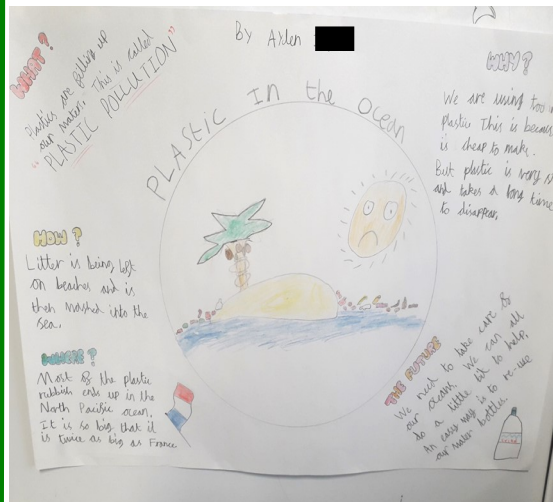 By Aylen
PLASTIC IN the OCEAN
WHAT?
Plastics are filling up
our water. This is called
"PLASTIC POLLUTION"
WHY?
We are using too
plastic This is because
is cheap to make.
But plastic is very
and takes a long time
to disappear.
HOW?
Litter is being left
on beaches and is
then washed into the
sea.
WHERE?
Most of the plastic
rubbish ends up in the
North Pacific ocean.
It is so big that it
is twice as big as France
THE FUTURE
We need to take care of
our oceans. We can all
do a little bit to help.
An easy way is to re-use
our water bottles.